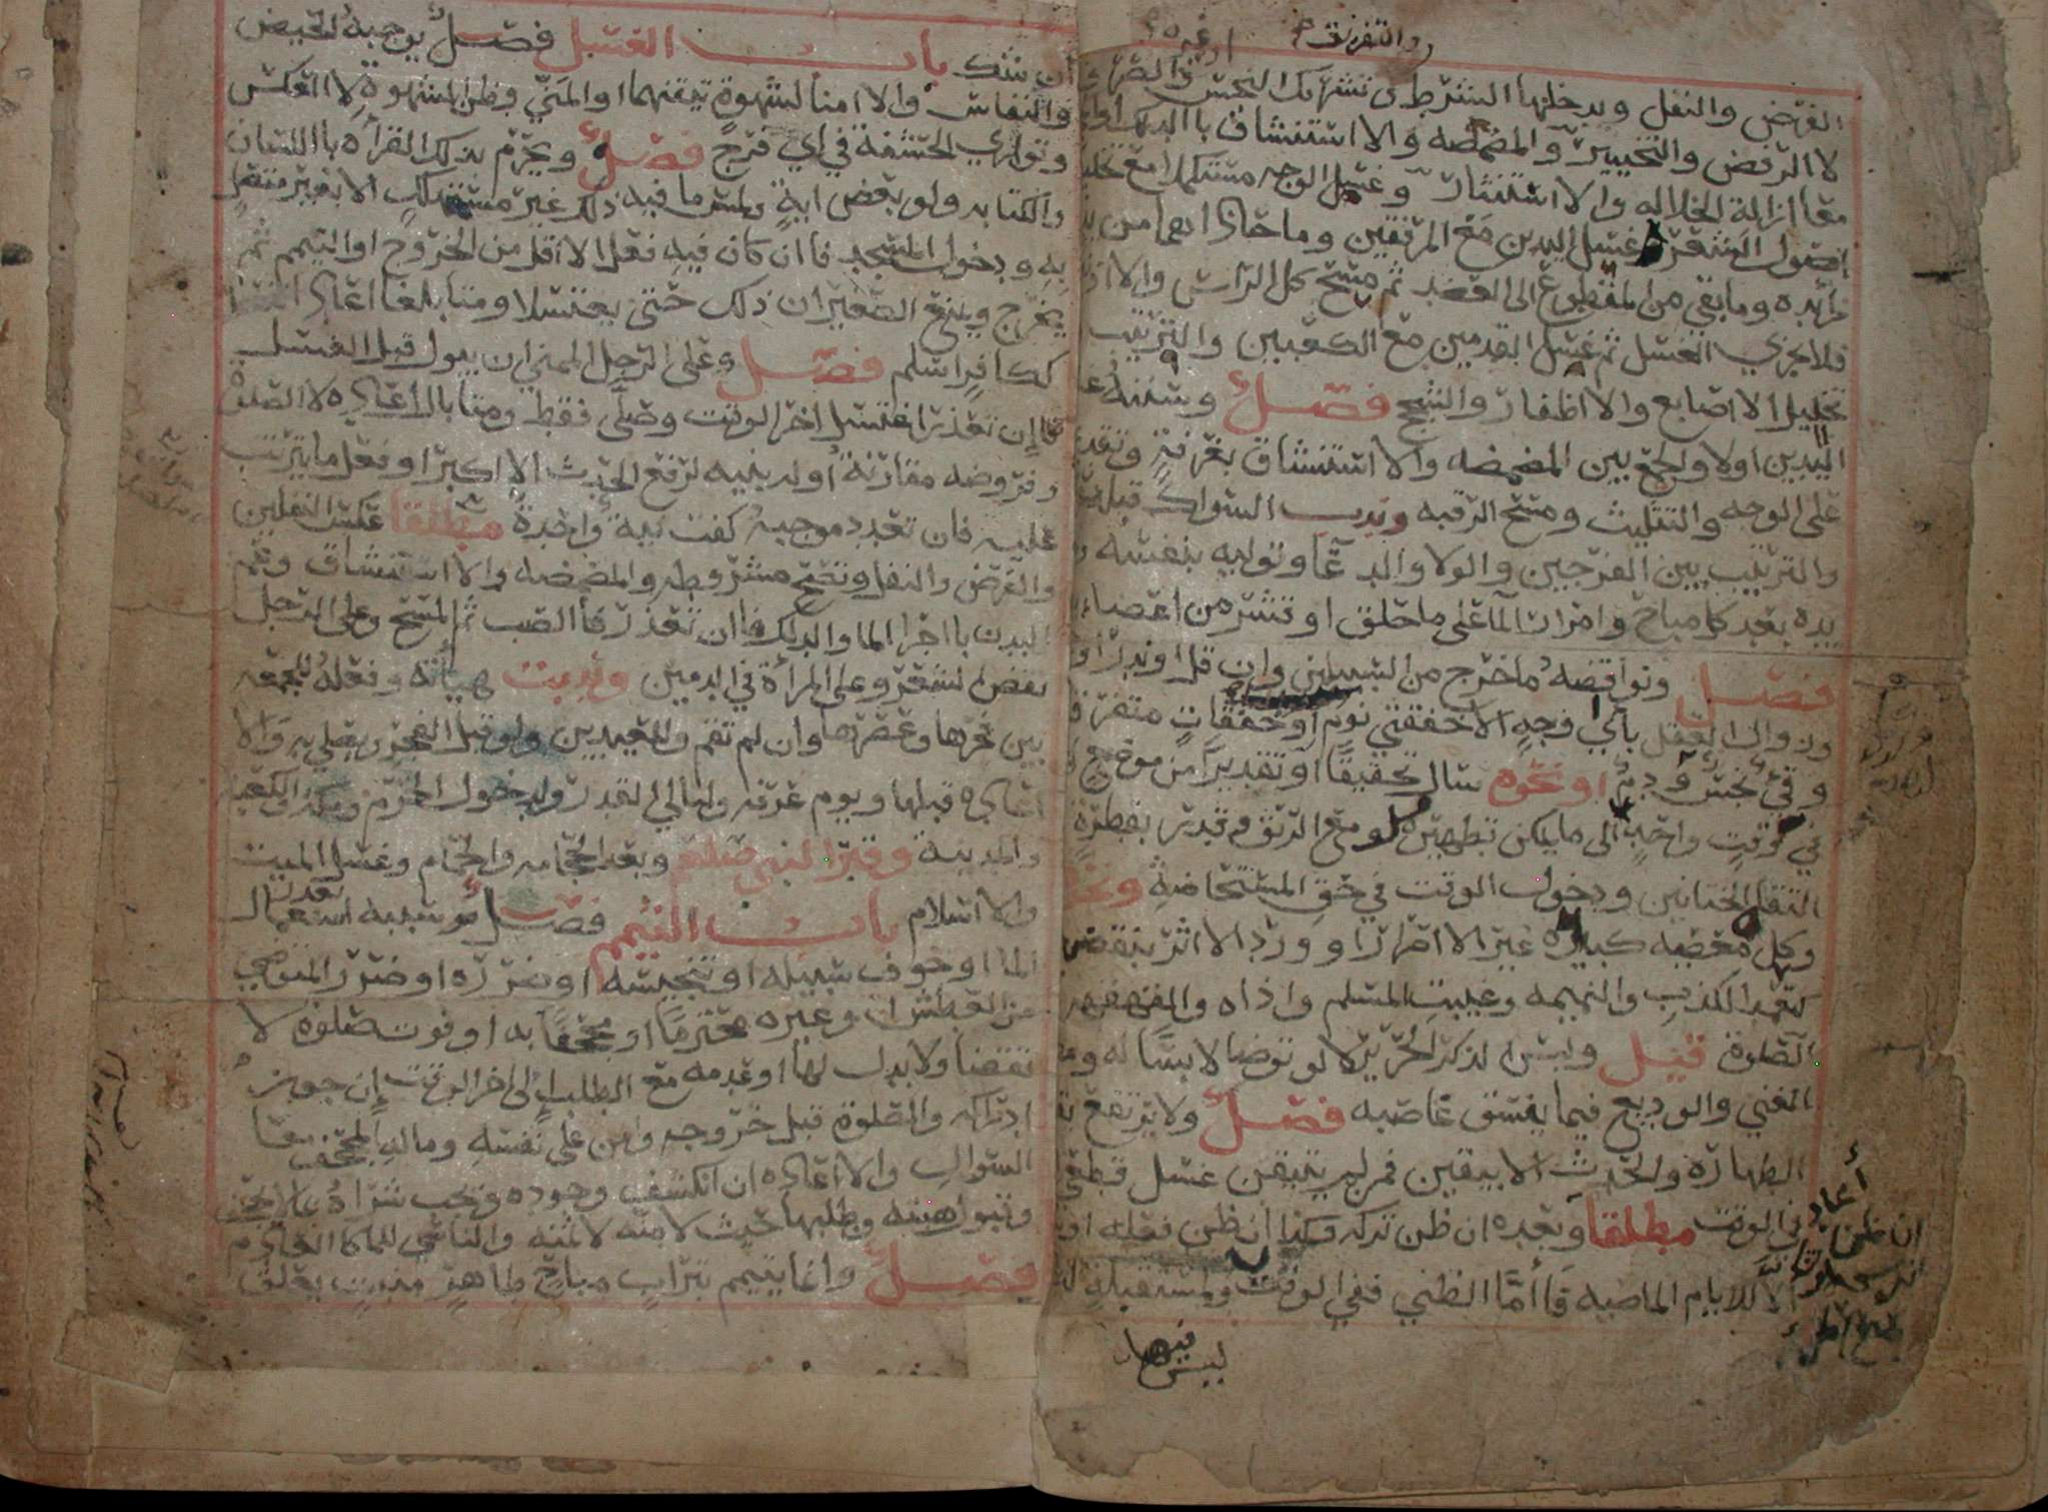 والتفريق
او غيره
الفرض والنفل ويدخلها الشرط لا تشريك النجس والصرف
لا الرفض والتخيير والمضمضه والاستنشاق بالدلك او
مع ازالة الخلاله والاستنثار وغسل الوجه مستكملا مع تخليل
اصول الشعر ثم غسل اليدين مع المرفقين وما حاذاهما من يد
زائده وما بقي من المقطوع الى العضد ثم مسح كل الراس والاذنين
فلا يجزي الغسل ثم غسل القدمين مع الكعبين والترتيب
تخليل الاصابع والاظفار والشجج فصل وسننه
اليدين اولا والجمع بين المضمضه والاستنشاق بغرفة وتقديمهما
على الوجه والتثليث ومسح الرقبه وندب السواك قبله
والترتيب بين الفرجين والولا والدعا وتوليه بنفسه
يده بعد كل مباح وامرار الما على ما حلق او قشر من اعضاء
فصل ونواقضه ما خرج من السبيلين وان قل او ندر
وزوال العقل باي وجه الا خفقتي نوم او خفقات متفرقة
وقي نجس ودم او نحوه سال تحقيقا او تقديرا من موضع
في وقت واحد الى ما يمكن تطهيره ولو مع الريق وقدر بقطرة
التقا الختانين ودخول الوقت في حق المستحاضة ونحوها
وكل معصيه كبيره غير الاصرار او ورد الاثر بنقضها
كتعمد الكذب والنميمه وغيبة المسلم واذاه والقهقهه
الصلوة قيل ولبس الذكر الحرير لا لو توضا لابسا له
الغني والوديع فيما يفسق غاصبه فصل ولا يرتفع
الطهاره والحدث الا بيقين فمن لم يتيقن غسل قطعي
أعاد في الوقت مطلقا وبعده ان ظن تركه وكذا ان ظن فعله
الا للايام الماضيه فأما الظني ففي الوقت ولمستقبله
ليس فيها
وان شك باب الغسل فصل يوجبه الحيض
والنفاس والامنا لشهوة تيقنهما او المني وظن الشهوة لا العكس
وتواري الحشفة في اي فرج فصل ويحرم بذلك القرأه باللسان
والكتابه ولو بعض اية ولمس ما فيه ذلك غير مستهلك الا بغير متصل
به ودخول المسجد فان كان فيه فعل الاقل من الخروج او التيمم ثم
يخرج ويمنع الصغيران ذلك حتى يغتسلا ومتى بلغا اعادا
ككافر اسلم فصل وعلى الرجل الممني ان يبول قبل الغسل
فان تعذر اغتسل اخر الوقت وصلى فقط ومتى بال اعاده لا الصلوة
وفروضه مقارنة اوله بنيه لرفع الحدث الاكبر او فعل ما يترتب
عليه فان تعدد موجبه كفت نية واحدة مطلقا عكس النفلين
والفرض والنفل وتصح مشروطه والمضمضه والاستنشاق وعم
البدن باجرا الما والدلك فان تعذر فالصب ثم المسح وعلى الرجل
نقض الشعر وعلى المرأة في الدمين وندبت هيأته وفعله للجمعه
بين فجرها وعصرها وان لم تقم وللعيدين ولو قبل الفجر ويصلي به والا
اعاده قبلها ويوم عرفه وليالي القدر ولدخول الحرم ومكه والكعبه
والمدينة وقبر النبي صلعم وبعد الحجامه والحمام وغسل الميت
والاسلام باب التيمم فصل سببه تعذر استعمال
الما او خوف سبيله او تنجيسه او ضرره او ضرر المتوضي
من العطش او غيره محترما او مجحفا به او فوت صلوة لا
تقضا ولا بدل لها او عدمه مع الطلب الى اخر الوقت ان جوز
ادراكه والصلوة قبل خروجه وامن على نفسه وماله المجحف مع
السوال والا اعاده ان انكشف وجوده ويجب شراه بما لا يجحف
وقبول هبته وطلبها حيث لا منه لا ثمنه والناسي للما كالعادم
فصل وانما يتيمم بتراب مباح طاهر منبت يعلق